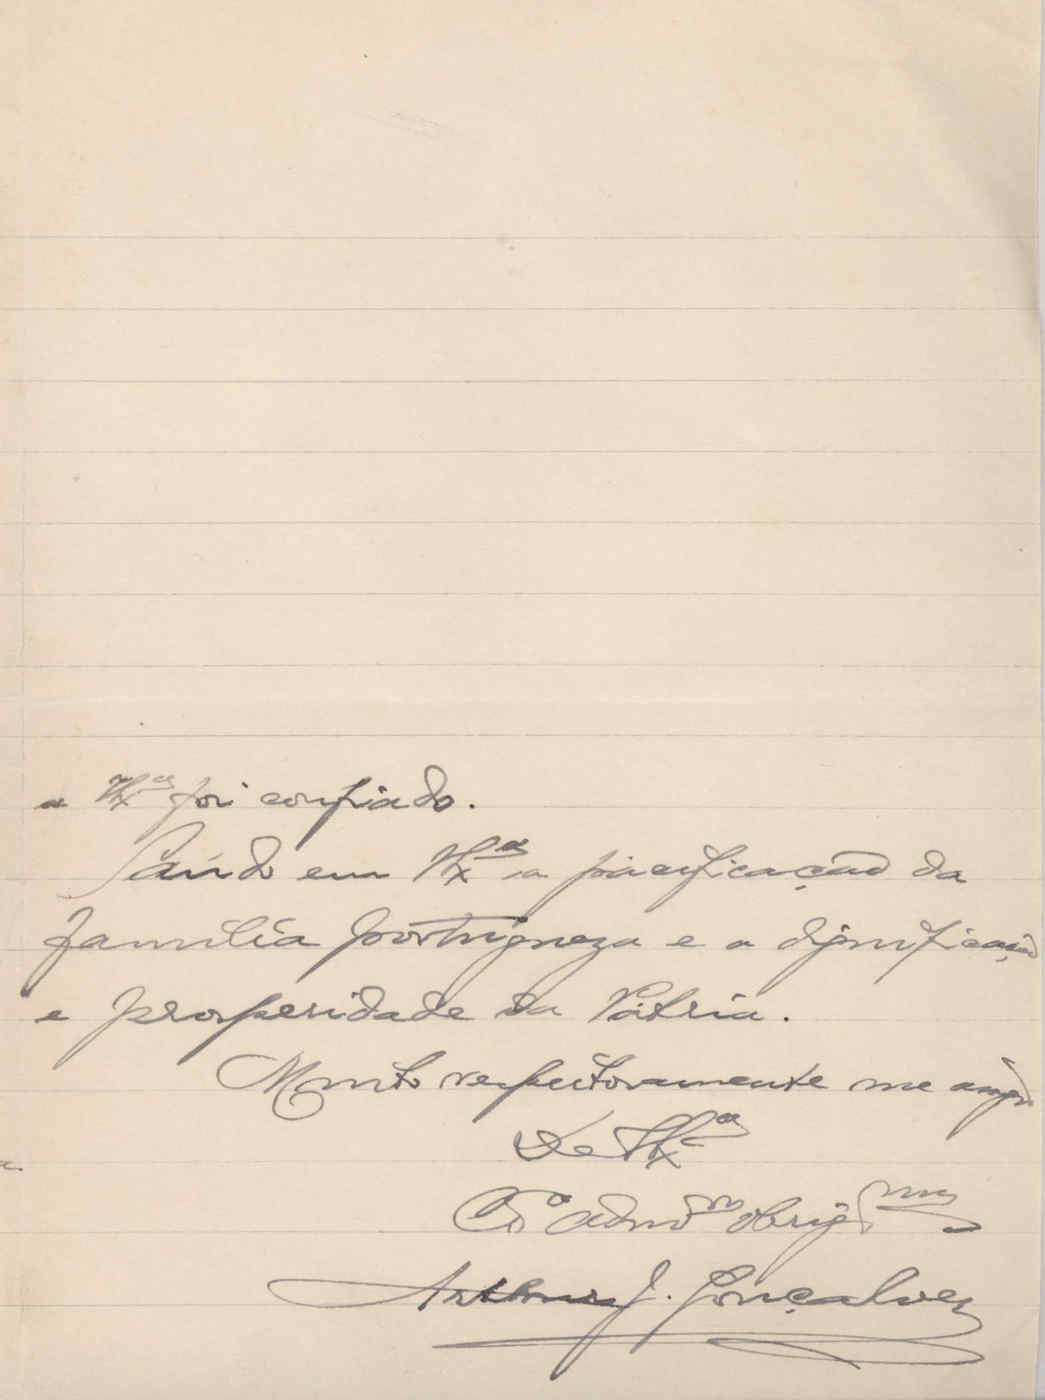 a V. Ex.ª foi confiado.
Saúdo em V. Ex.ª a pacificação da
familia portugueza e a dignificação
e prosperidade da Pátria.
Muito respeitosamente me
De V. Ex.ª
Cdo admor obrigmo
Antonio J. Gonçalves